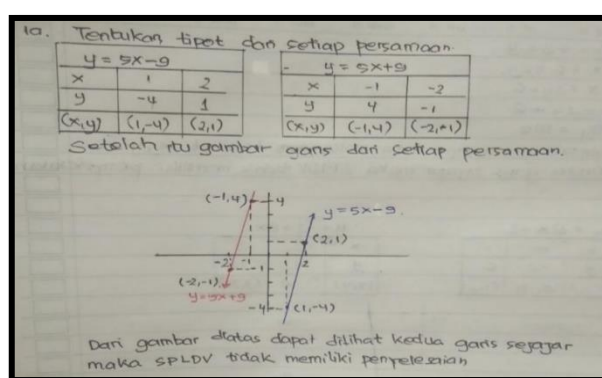 1a. Tentukan tipot dari setiap persamaan.
y = 5x-9
x 1 2
y -4 1
(x,y) (1,-4) (2,1)
y = 5x+9
x -1 -2
y 4 -1
(x,y) (-1,4) (-2,-1)
Setelah itu gambar garis dari setiap persamaan.
(-1,4) 4 y=5x-9.
(2,1)
-2 -1 -1 1 2
(-2,-1)
y=5x+9 -4 (1,-4)
Dari gambar diatas dapat dilihat kedua garis sejajar
maka SPLDV tidak memiliki penyelesaian